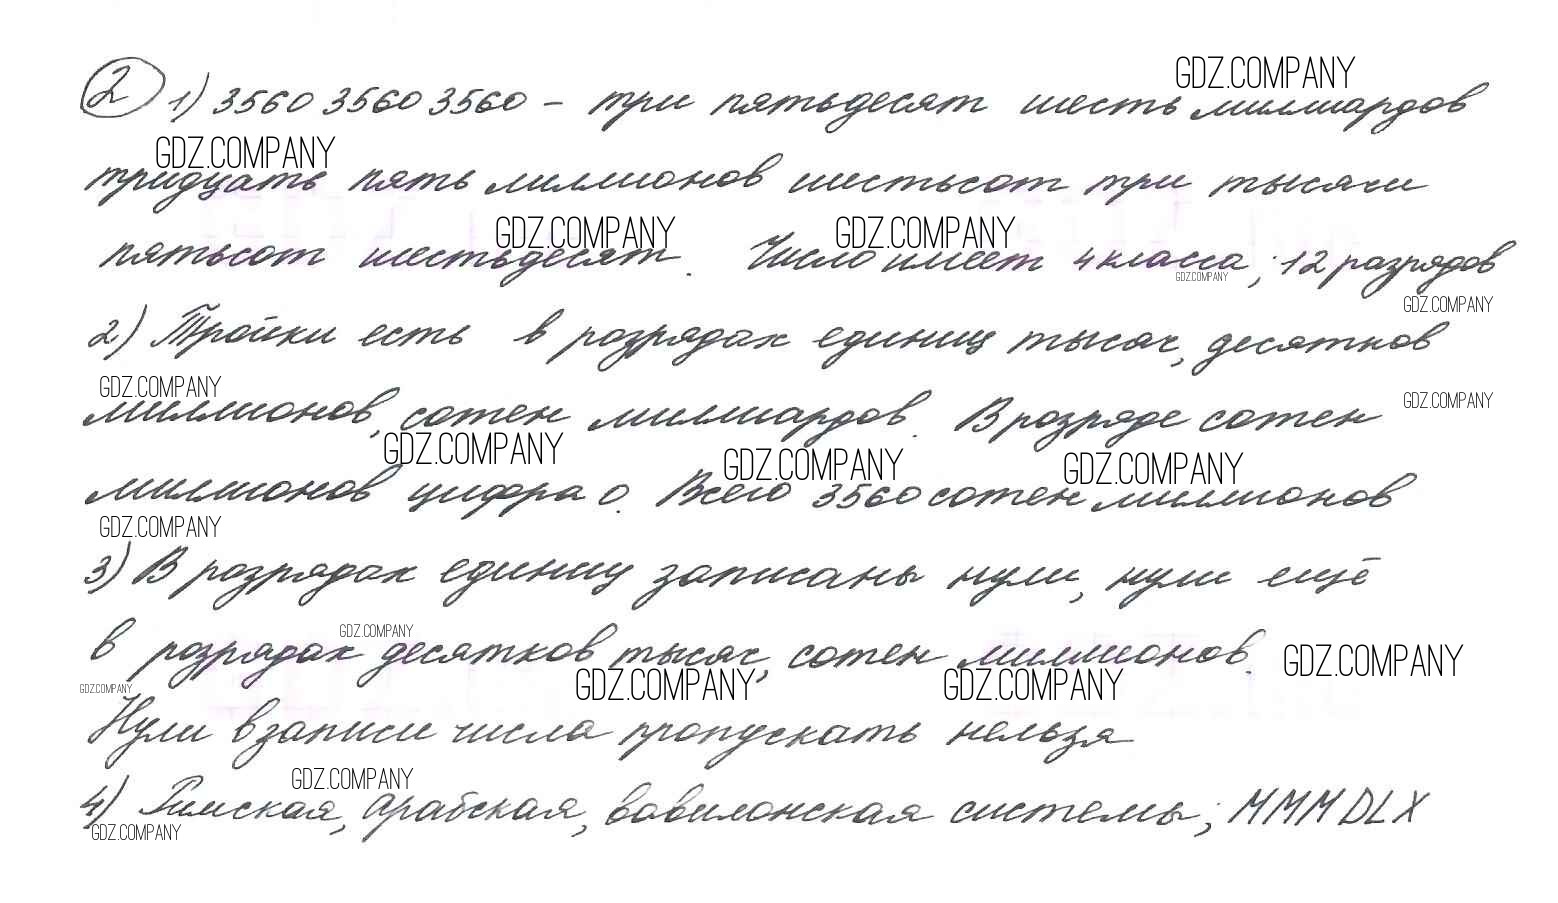 GDZ.COMPANY
2 1) 3560 3560 3560 – три пятьдесят шесть миллиардов
GDZ.COMPANY
тридцать пять миллионов шестьсот три тысячи
GDZ.COMPANY GDZ.COMPANY
пятьсот шестьдесят. Число имеет 4 класса; 12 разрядов
GDZ.COMPANY
GDZ.COMPANY
2) Тройки есть в разрядах единиц тысяч, десятков
GDZ.COMPANY
GDZ.COMPANY
миллионов, сотен миллиардов. В розряде сотен
GDZ.COMPANY GDZ.COMPANY GDZ.COMPANY
миллионов цифра 0. Всего 3560 сотен миллионов
GDZ.COMPANY
3) В розрядах единиц записаны нули, нули ещё
GDZ.COMPANY
в розрядах десятков тысяч, сотен миллионов.
GDZ.COMPANY
GDZ.COMPANY GDZ.COMPANY GDZ.COMPANY
Нули в записи числа пропускать нельзя
GDZ.COMPANY
4) Римская, арабская, вавилонская системы; MMMDLX
GDZ.COMPANY